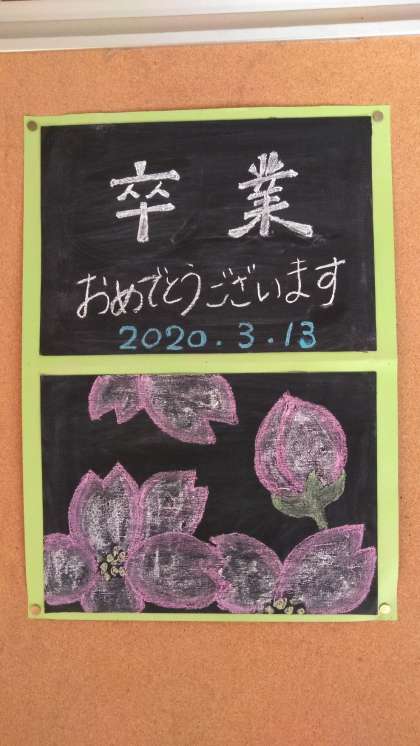 卒業
おめでとうございます
2020.3.13